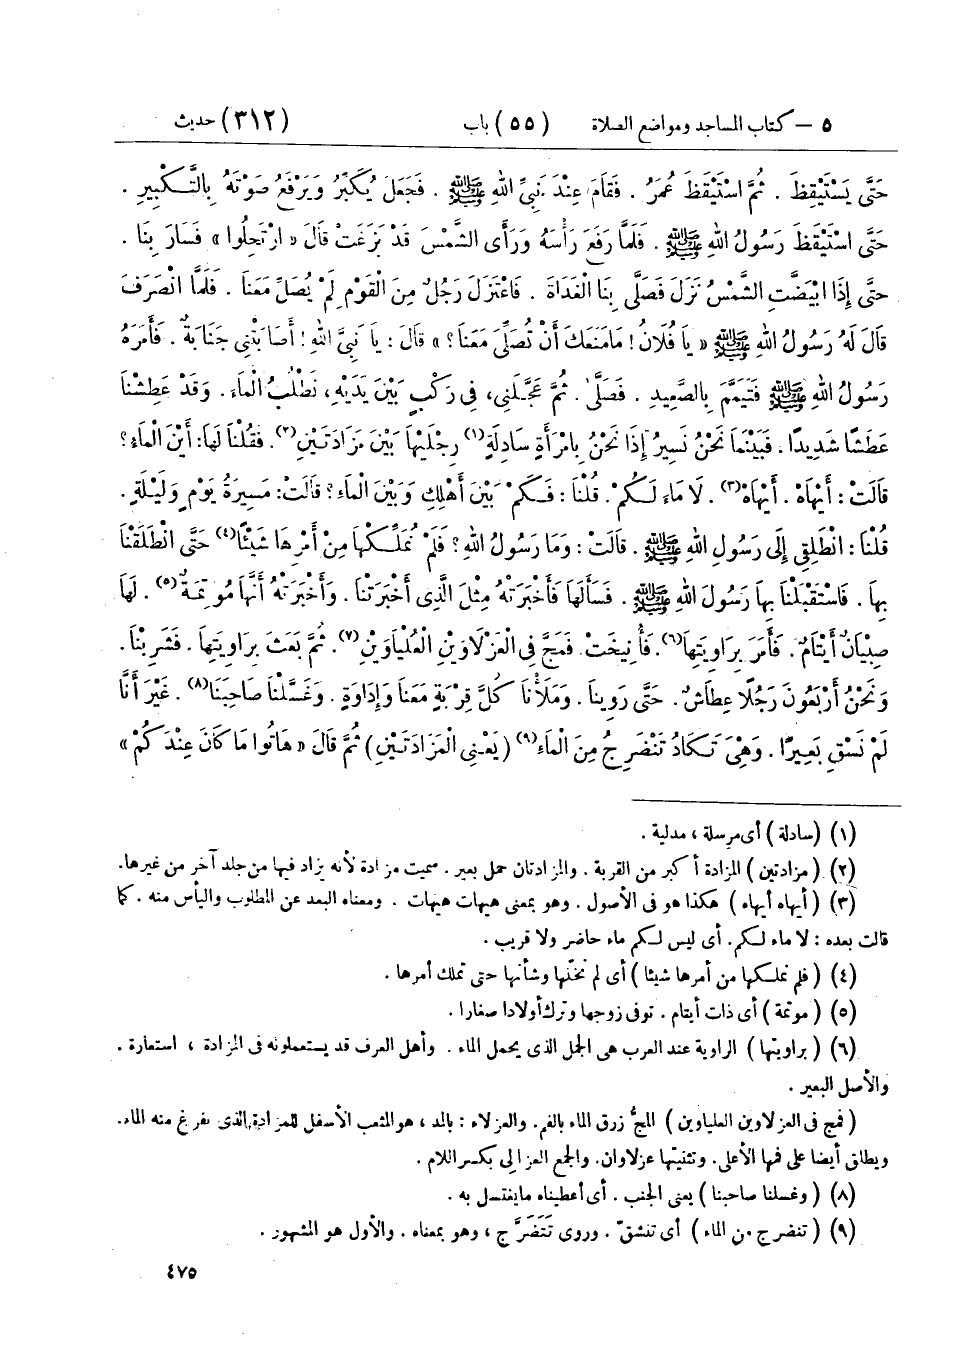 ٥ – كتاب المساجد ومواضع الصلاة (٥٥) باب (٣١٢) حديث
حَتَّى يَسْتَيْقِظَ . ثُمَّ اسْتَيْقَظَ عُمَرُ . فَقَامَ عِنْدَ نَبِيِّ اللهِ ﷺ . فَجَعَلَ يُكَبِّرُ وَيَرْفَعُ صَوْتَهُ بِالتَّكْبِيرِ .
حَتَّى اسْتَيْقَظَ رَسُولُ اللهِ ﷺ . فَلَمَّا رَفَعَ رَأْسَهُ وَرَأَى الشَّمْسَ قَدْ بَزَغَتْ قَالَ « ارْتَحِلُوا » فَسَارَ بِنَا .
حَتَّى إِذَا ابْيَضَّتِ الشَّمْسُ نَزَلَ فَصَلَّى بِنَا الْغَدَاةَ . فَاعْتَزَلَ رَجُلٌ مِنَ الْقَوْمِ لَمْ يُصَلِّ مَعَنَا . فَلَمَّا انْصَرَفَ
قَالَ لَهُ رَسُولُ اللهِ ﷺ « يَا فُلَانُ ! مَا مَنَعَكَ أَنْ تُصَلِّيَ مَعَنَا ؟ » قَالَ : يَا نَبِيَّ اللهِ ! أَصَابَتْنِي جَنَابَةٌ . فَأَمَرَهُ
رَسُولُ اللهِ ﷺ فَتَيَمَّمَ بِالصَّعِيدِ . فَصَلَّى . ثُمَّ عَجَّلَنِي ، فِي رَكْبٍ بَيْنَ يَدَيْهِ ، نَطْلُبُ الْمَاءَ . وَقَدْ عَطِشْنَا
عَطَشًا شَدِيدًا . فَبَيْنَمَا نَحْنُ نَسِيرُ إِذَا نَحْنُ بِامْرَأَةٍ سَادِلَةٍ (١) رِجْلَيْهَا بَيْنَ مَزَادَتَيْنِ (٢) . فَقُلْنَا لَهَا: أَيْنَ الْمَاءُ ؟
قَالَتْ : أَيْهَاهْ . أَيْهَاهْ (٣) . لَا مَاءَ لَكُمْ . قُلْنَا : فَكَمْ بَيْنَ أَهْلِكِ وَبَيْنَ الْمَاءِ ؟ قَالَتْ: مَسِيرَةُ يَوْمٍ وَلَيْلَةٍ .
قُلْنَا : انْطَلِقِي إِلَى رَسُولِ اللهِ ﷺ . قَالَتْ : وَمَا رَسُولُ اللهِ ؟ فَلَمْ نُمَلِّكْهَا مِنْ أَمْرِهَا شَيْئًا (٤) حَتَّى انْطَلَقْنَا
بِهَا . فَاسْتَقْبَلْنَا بِهَا رَسُولَ اللهِ ﷺ . فَسَأَلَهَا فَأَخْبَرَتْهُ مِثْلَ الَّذِي أَخْبَرَتْنَا . وَأَخْبَرَتْهُ أَنَّهَا مُوتِمَةٌ (٥) . لَهَا
صِبْيَانٌ أَيْتَامٌ . فَأَمَرَ بِرَاوِيَتِهَا (٦) . فَأُنِيخَتْ . فَمَجَّ فِي الْعَزْلَاوَيْنِ الْعُلْيَاوَيْنِ (٧) . ثُمَّ بَعَثَ بِرَاوِيَتِهَا . فَشَرِبْنَا .
وَنَحْنُ أَرْبَعُونَ رَجُلًا عِطَاشٌ . حَتَّى رَوِينَا . وَمَلَأْنَا كُلَّ قِرْبَةٍ مَعَنَا وَإِدَاوَةٍ . وَغَسَّلْنَا صَاحِبَنَا (٨) . غَيْرَ أَنَّا
لَمْ نَسْقِ بَعِيرًا . وَهِيَ تَكَادُ تَنْضَرِجُ مِنَ الْمَاءِ (٩) ( يَعْنِي الْمَزَادَتَيْنِ ) ثُمَّ قَالَ « هَاتُوا مَا كَانَ عِنْدَكُمْ »
(١) ( سادلة ) أى مرسلة ، مدلية .
(٢) ( مزادتين ) المزادة أكبر من القربة . والمزادتان حمل بعير . سميت مزادة لأنه يزاد فيها من جلد آخر من غيرها.
(٣) ( أيهاه أيهاه ) هكذا هو فى الأصول . وهو بمعنى هيهات هيهات . ومعناه البعد عن المطلوب واليأس منه . كما
قالت بعده : لا ماء لكم. أى ليس لكم ماء حاضر ولا قريب .
(٤) ( فلم نملكها من أمرها شيئا ) أى لم نخلّها وشأنها حتى تملك أمرها .
(٥) ( موتمة ) أى ذات أيتام . توفى زوجها وترك أولادا صغارا .
(٦) ( براويتها ) الراوية عند العرب هى الجمل الذى يحمل الماء . وأهل العرف قد يستعملونه فى المزادة ، استعارة .
والأصل البعير .
( فمج فى العزلاوين العلياوين ) المجّ زرق الماء بالفم. والعزلاء : بالمد ، هو المثعب الأسفل للمزادة الذى يفرغ منه الماء.
ويطلق أيضا على فمها الأعلى. وتثنيتها عزلاوان. والجمع العزالِى بكسر اللام .
(٨) ( وغسلنا صاحبنا ) يعنى الجنب . أى أعطيناه ما يغتسل به .
(٩) ( تنضرج من الماء ) أى تنشقّ . وروى تَتَضَرَّج ، وهو بمعناه . والأول هو المشهور .
٤٧٥